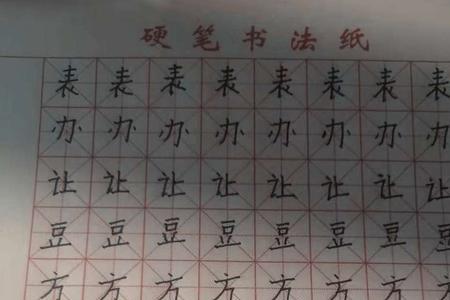 硬笔书法纸
表表表表表表表表
办办办办办办办办
让让让让让让让让
豆豆豆豆豆豆豆豆
方方方方方方方方